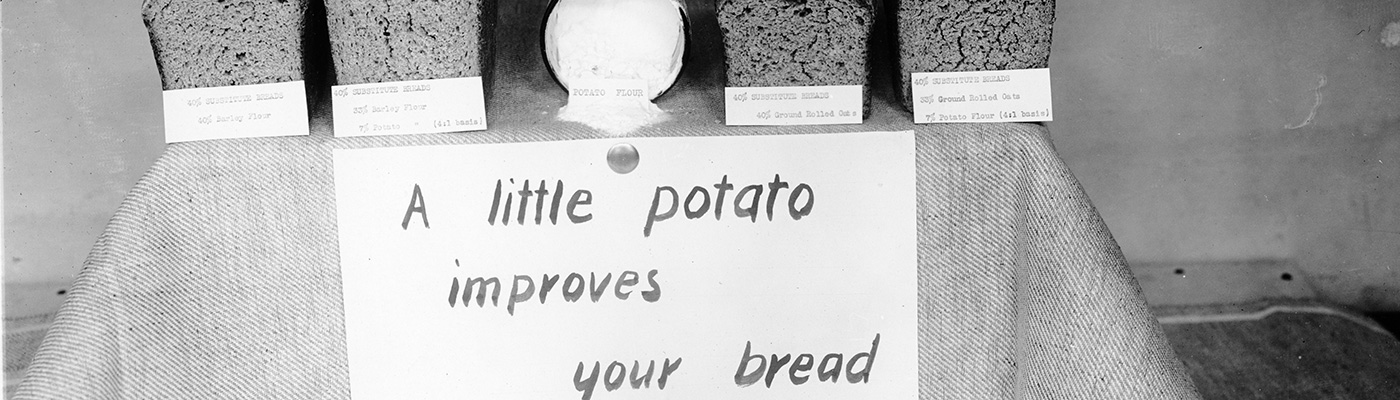 40% SUBSTITUTE BREADS
40% Barley Flour
40% SUBSTITUTE BREADS
33% Barley Flour
7% Potato " (4:1 basis)
POTATO FLOUR
40% SUBSTITUTE BREADS
40% Ground Rolled Oats
40% SUBSTITUTE BREADS
33% Ground Rolled Oats
7% Potato Flour (4:1 basis)
A little potato
improves
your bread